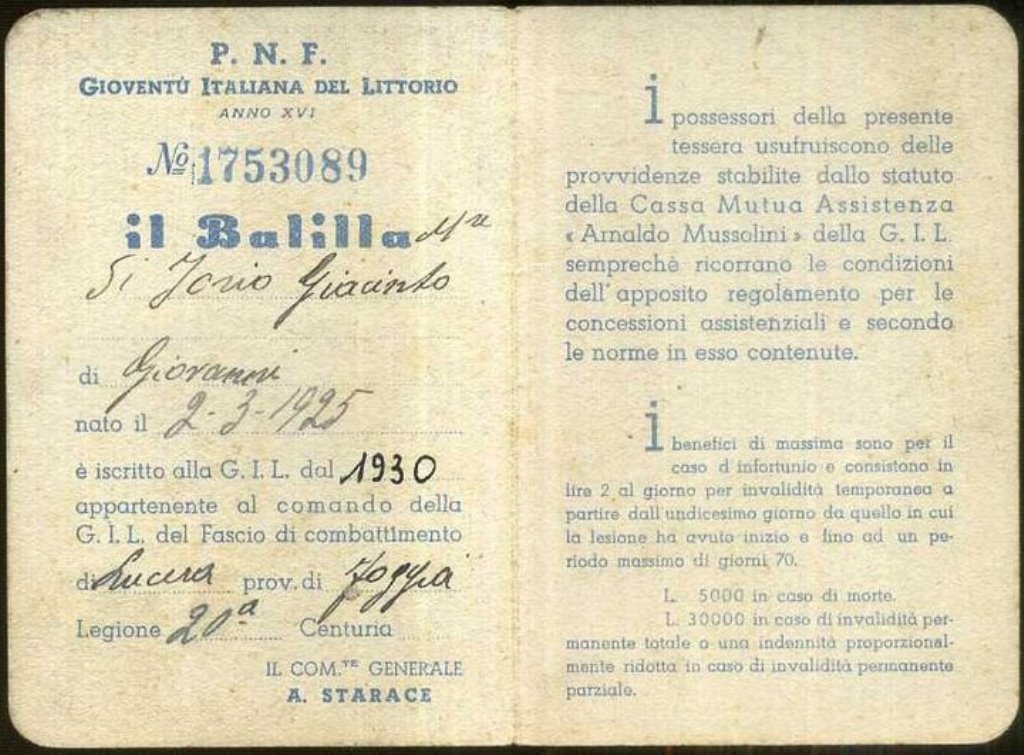 P. N. F.
GIOVENTÙ ITALIANA DEL LITTORIO
ANNO XVI
No 1753089
il Balilla
Di Iorio Giacinto
di Giovanni
nato il 2-3-1925
è iscritto alla G. I. L. dal 1930
appartenente al comando della
G. I. L. del Fascio di combattimento
di Lucera prov. di Foggia
Legione 20a Centuria
IL COM.TE GENERALE
A. STARACE
i possessori della presente
tessera usufruiscono delle
provvidenze stabilite dallo statuto
della Cassa Mutua Assistenza
« Arnaldo Mussolini » della G. I. L.
semprechè ricorrano le condizioni
dell'apposito regolamento per le
concessioni assistenziali e secondo
le norme in esso contenute.
i benefici di massima sono per il
caso d infortunio e consistono in
lire 2 al giorno per invalidità temporanea a
partire dall'undicesimo giorno da quello in cui
la lesione ha avuto inizio e fino ad un pe-
riodo massimo di giorni 70.
L. 5000 in caso di morte.
L. 30000 in caso di invalidità per-
manente totale o una indennità proporzional-
mente ridotta in caso di invalidità permanente
parziale.